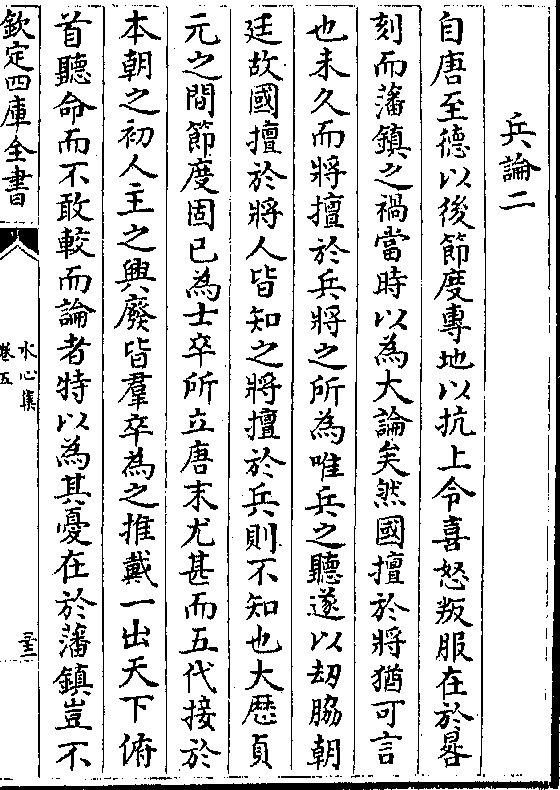 兵論二
自唐至德以後節度專地以抗上令喜怒叛服在於晷
刻而藩鎮之禍當時以為大論矣然國擅於將猶可言
也未久而將擅於兵將之所為唯兵之聽遂以刼脇朝
廷故國擅於將人皆知之將擅於兵則不知也大厯貞
元之間節度固已為士卒所立唐末尤甚而五代接於
本朝之初人主之興廢皆羣卒為之推戴一出天下俯
首聽命而不敢較而論者特以為其憂在於藩鎮豈不
欽定四庫全書
水心集
卷五
三十三